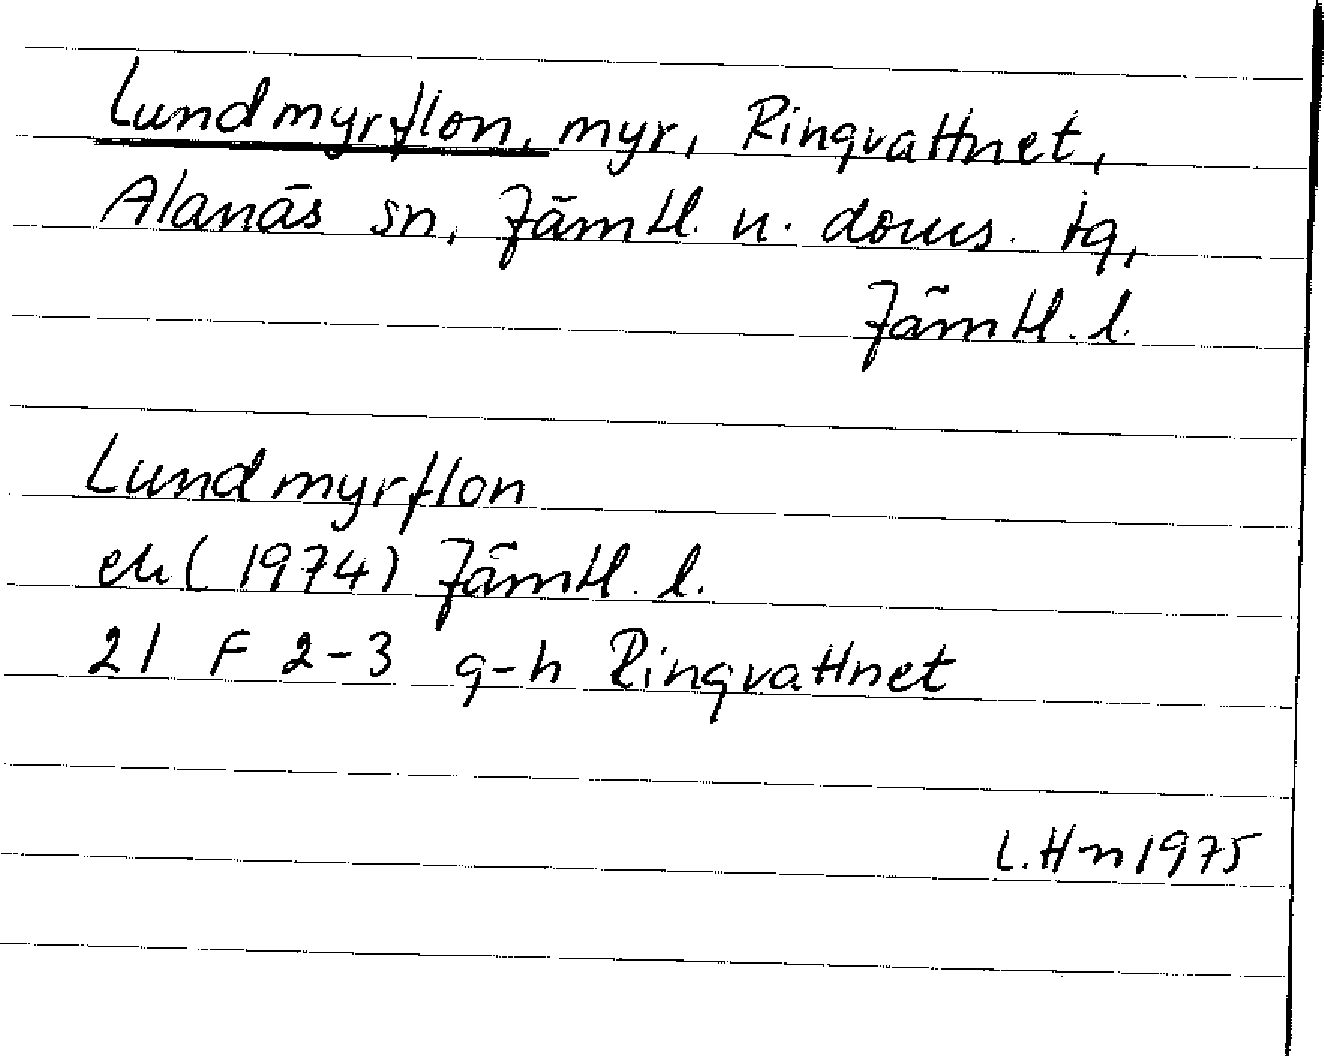 Lundmyrflon, myr, Ringvattnet,
Alanäs sn, Jämtl. n. doms. tg,
Jämtl. l.
Lundmyrflon
ek (1974) Jämtl. l.
21 F 2-3 g-h Ringvattnet
L.Hn 1975